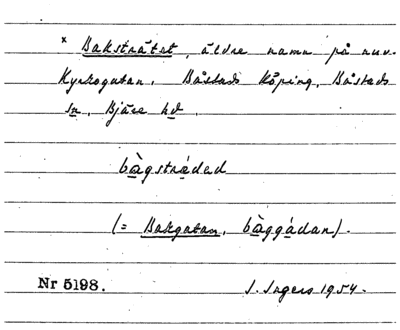 × Baksträtet, äldre namn på nuv.
Kyrkogatan, Båstads köping, Båstads
sn, Bjäre hd.
bàgsträded
(= Bakgatan, bàggádan).
Nr 5198.
I. Ingers 1954.